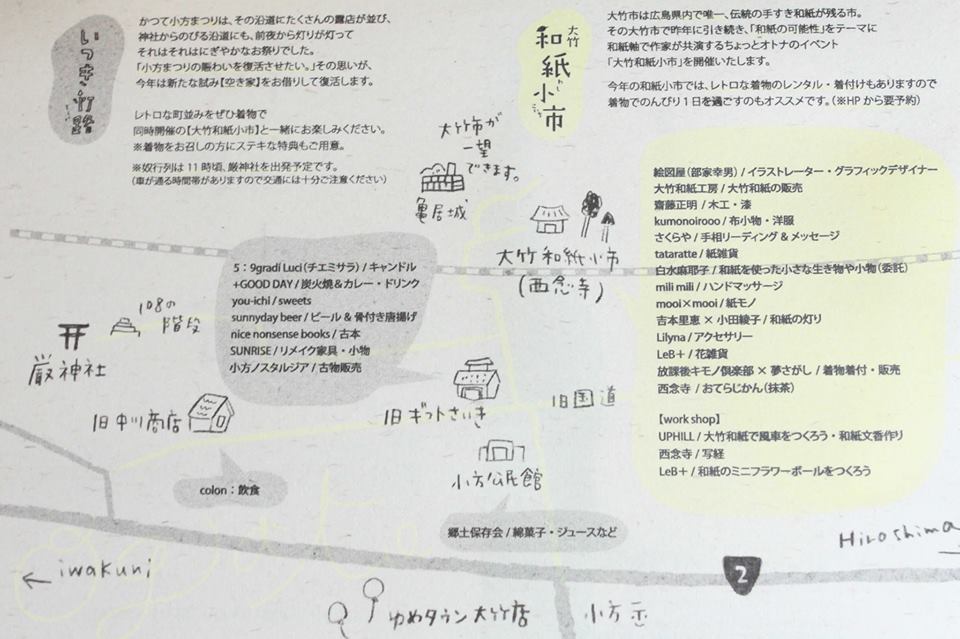 いつき町路
かつて小方まつりは、その沿道にたくさんの露店が並び、
神社からのびる沿道にも、前夜から灯りが灯って
それはそれはにぎやかなお祭りでした。
「小方まつりの賑わいを復活させたい。」その思いが、
今年は新たな試み【空き家】をお借りして復活します。
レトロな町並みをぜひ着物で
同時開催の【大竹和紙小市】と一緒にお楽しみください。
※着物をお召しの方にステキな特典もご用意。
※奴行列は11時頃、厳神社を出発予定です。
（車が通る時間帯がありますので交通には十分ご注意ください）
大竹
和紙小市
わし こいち
大竹市は広島県内で唯一、伝統の手すき和紙が残る市。
その大竹市で昨年に引き続き、「和紙の可能性」をテーマに
和紙軸で作家が共演するちょっとオトナのイベント
「大竹和紙小市」を開催いたします。
今年の和紙小市では、レトロな着物のレンタル・着付けもありますので
着物でのんびり1日を過ごすのもオススメです。（※HPから要予約）
大竹市が
一望
できます。
亀居城
大竹和紙小市
（西念寺）
絵図屋（部家幸男）/ イラストレーター・グラフィックデザイナー
大竹和紙工房 / 大竹和紙の販売
齋藤正明 / 木工・漆
kumonoirooo / 布小物・洋服
さくらや / 手相リーディング & メッセージ
tataratte / 紙雑貨
白水麻耶子 / 和紙を使った小さな生き物や小物（委託）
mili mili / ハンドマッサージ
mooi×mooi / 紙モノ
吉本里恵 × 小田綾子 / 和紙の灯り
Lilyna / アクセサリー
LeB+ / 花雑貨
放課後キモノ倶楽部 × 夢さがし / 着物着付・販売
西念寺 / おてらじかん（抹茶）
【work shop】
UPHILL / 大竹和紙で風車をつくろう・和紙文香作り
西念寺 / 写経
LeB+ / 和紙のミニフラワーボールをつくろう
5：9gradi Luci（チエミサラ）/ キャンドル
+GOOD DAY / 炭火焼＆カレー・ドリンク
you-ichi / sweets
sunnyday beer / ビール & 骨付き唐揚げ
nice nonsense books / 古本
SUNRISE / リメイク家具・小物
小方ノスタルジア / 古物販売
108の
階段
厳神社
旧中川商店
旧ギフトさいき
旧国道
小方公民館
colon：飲食
郷土保存会 / 綿菓子・ジュースなど
Hiroshima
← iwakuni
2
ゆめタウン大竹店
小方